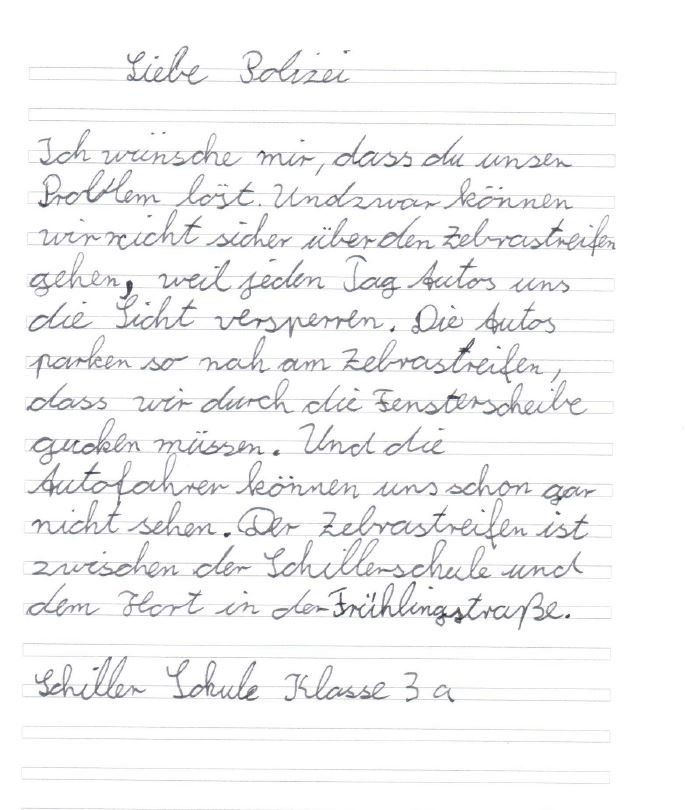 Liebe Polizei
Ich wünsche mir, dass du unser
Problem löst. Und zwar können
wir nicht sicher über den Zebrastreifen
gehen, weil jeden Tag Autos uns
die Sicht versperren. Die Autos
parken so nah am Zebrastreifen,
dass wir durch die Fensterscheibe
gucken müssen. Und die
Autofahrer können uns schon gar
nicht sehen. Der Zebrastreifen ist
zwischen der Schillerschule und
dem Hort in der Frühlingstraße.
Schiller Schule Klasse 3 a